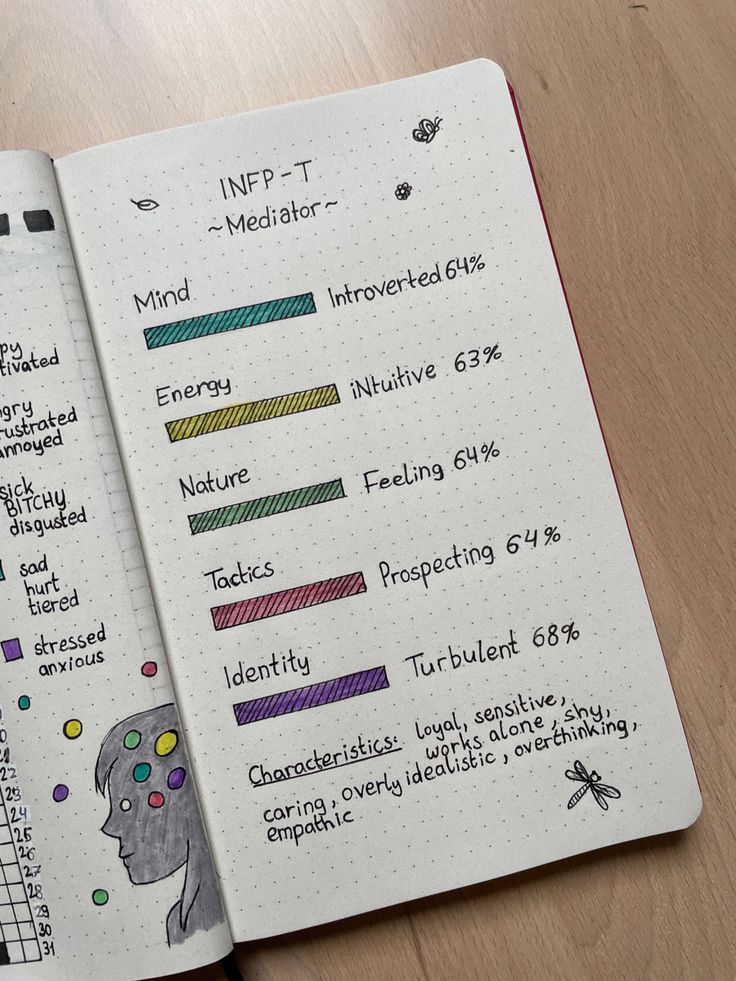 py
tivated
gry
rustrated
annoyed
sick
BITCHY
disgusted
sad
hurt
tiered
stressed
anxious
22
23
24
25
26
27
28
29
30
31
INFP-T
~Mediator~
Mind
Introverted 64%
Energy
iNtuitive 63%
Nature
Feeling 64%
Tactics
Prospecting 64%
Identity
Turbulent 68%
Characteristics: loyal, sensitive,
works alone, shy,
caring, overly idealistic, overthinking,
empathic